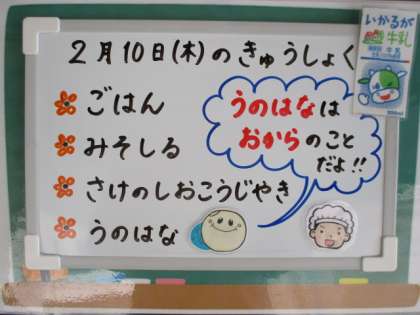 2月10日(木)のきゅうしょく
いかるが
牛乳
ごはん
みそしる
さけのしおこうじやき
うのはな
うのはなは
おからのこと
だよ!!